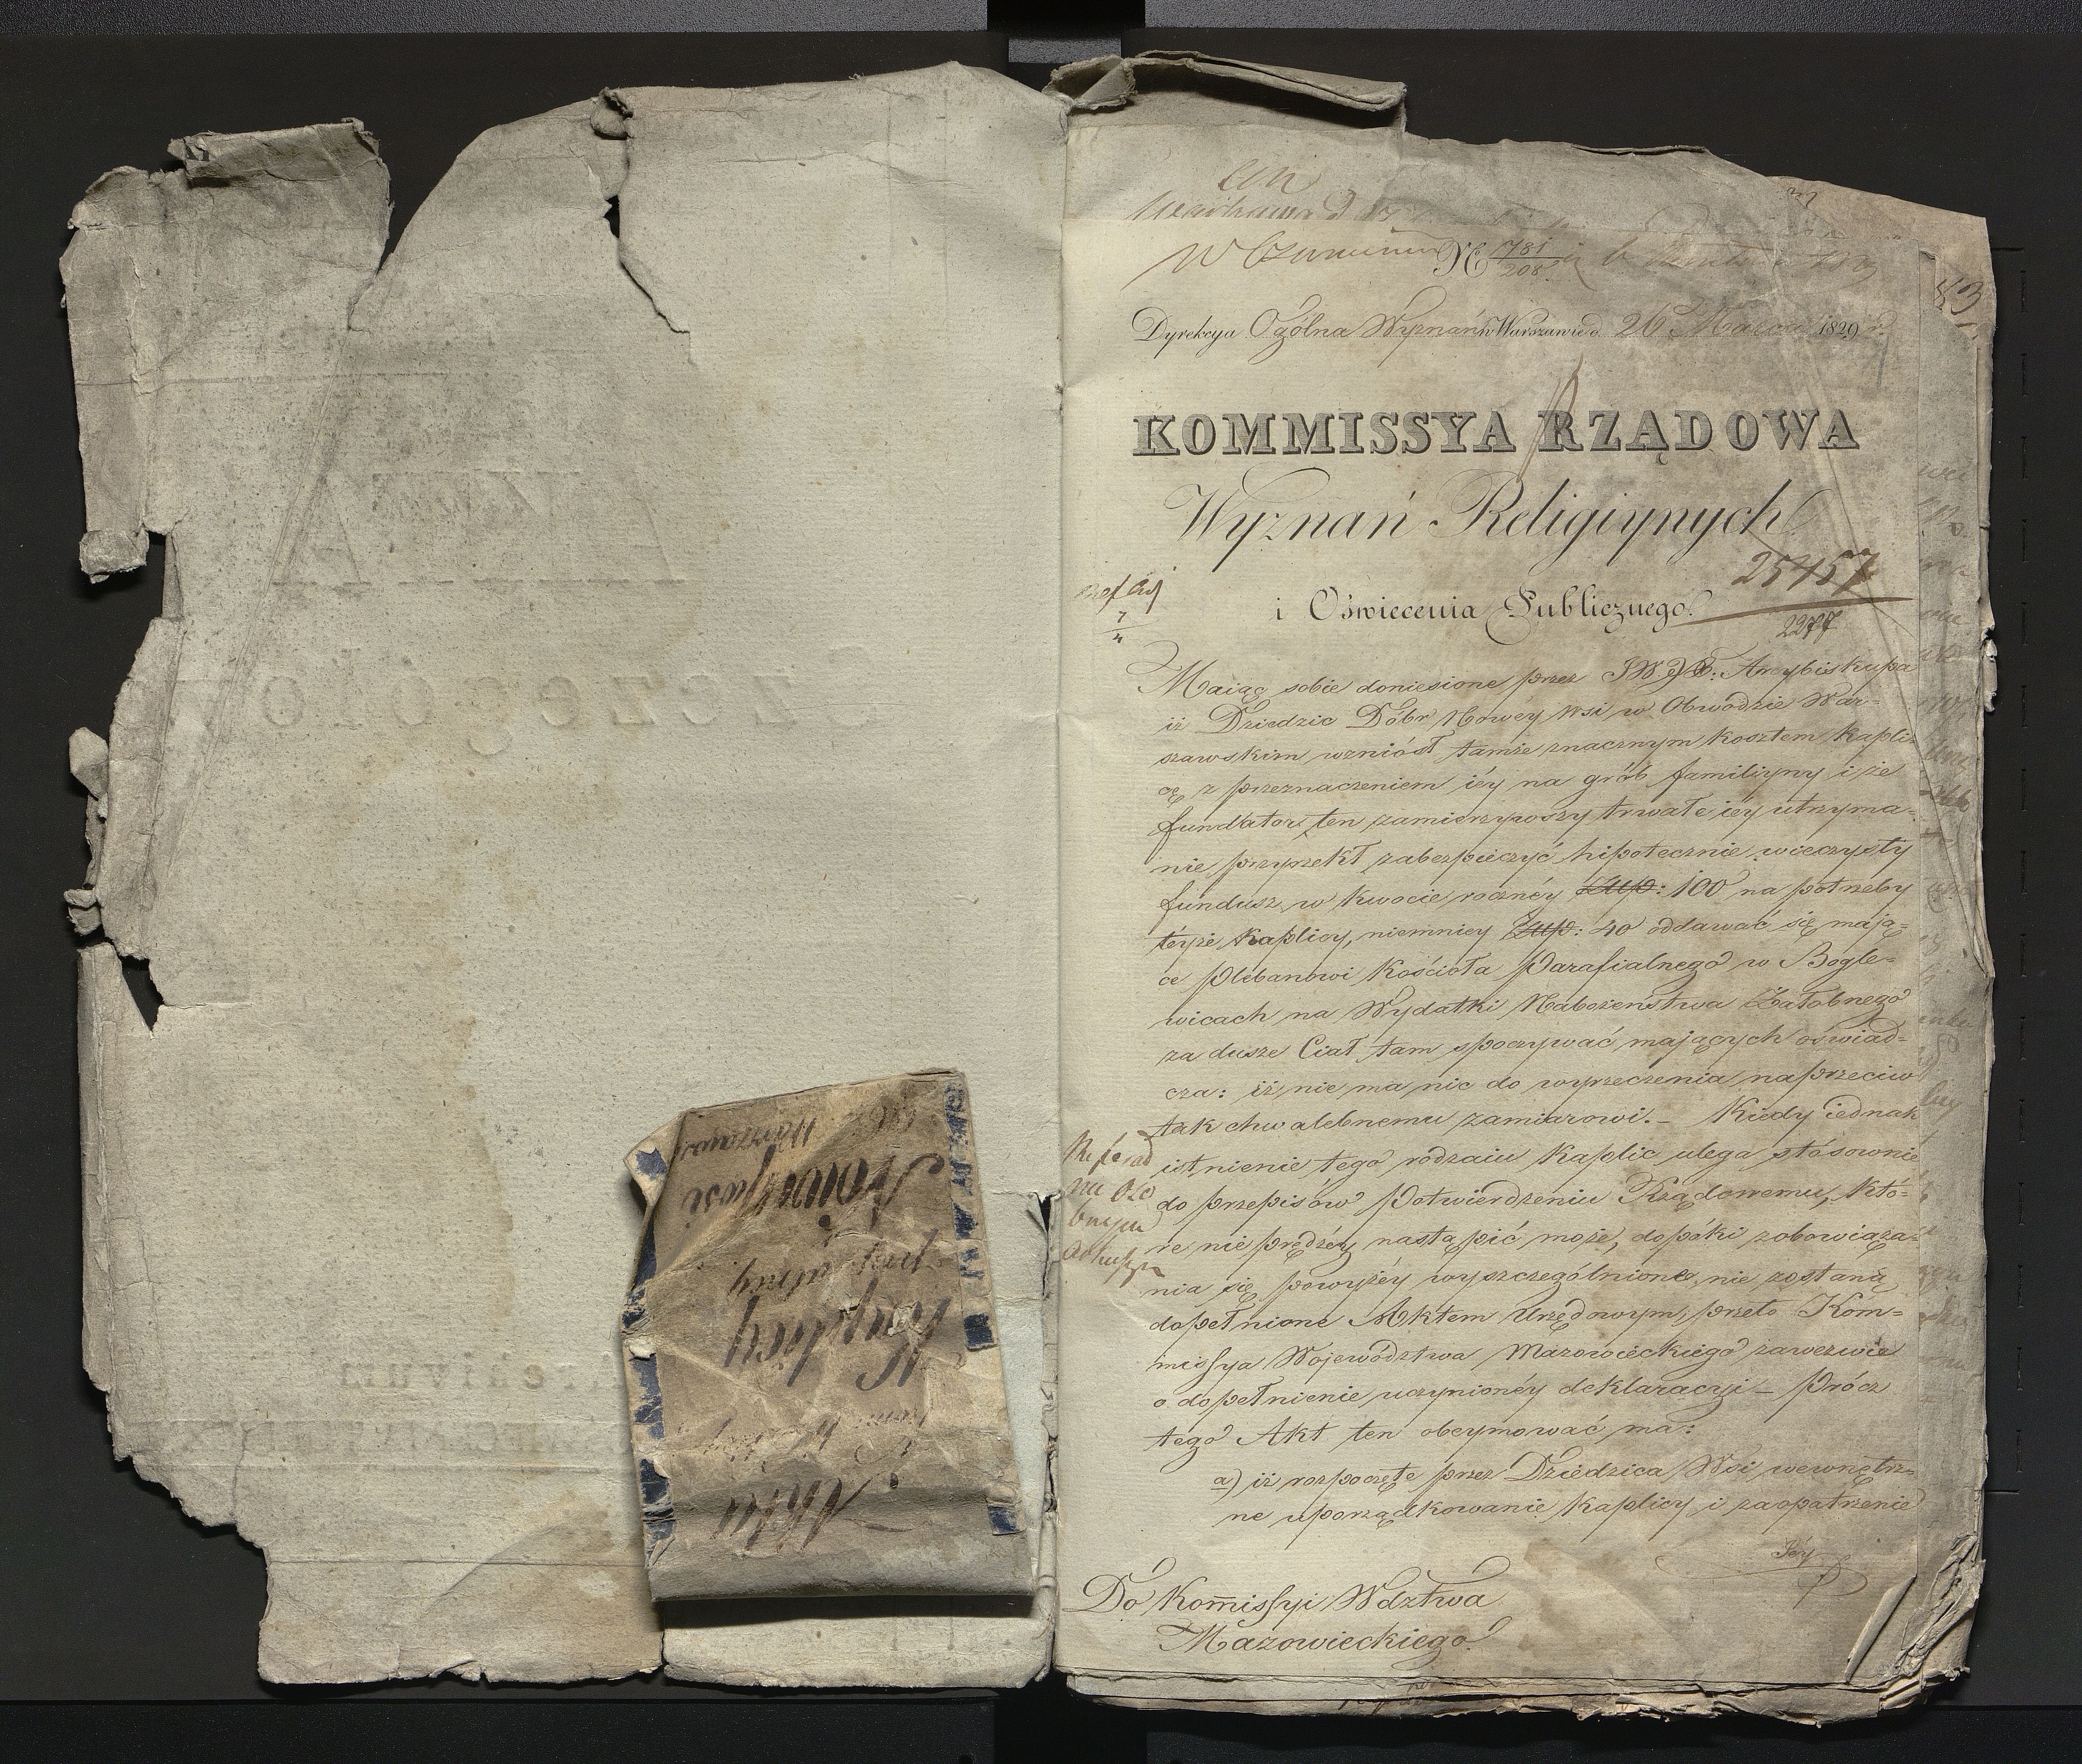 № 781/208
83
Dyrekcya Ogólna Wyznań w Warszawie d. 26 Marca 1829 r.
KOMMISSYA RZĄDOWA
Wyznań Religiynych
25457
2277
i Oświecenia Publicznego.
7/4
Maiąc sobie doniesione przez JWJX: Arcybiskupa
iż Dziedzic Dóbr Nowey Wsi w Obwodzie War-
szawskim wzniósł tamże znacznym kosztem kapli-
cę z przeznaczeniem iéy na grób familiyny i że
fundator ten zamierzywszy trwałe iéy utrzyma-
nie przyrzekł zabezpieczyć hipotecznie wieczysty
fundusz w kwocie rocznéy Złłp: 100 na potrzeby
téyże Kaplicy, niemniey Złłp: 40 oddawać się mają-
ce Plebanowi Kościoła Parafialnego w Bogle-
wicach na Wydatki Nabożeństwa Żałobnego
za dusze Ciał tam spoczywać mających oświad-
cza: iż nie ma nic do wyrzeczenia naprzeciw
tak chwalebnemu zamiarowi. - Kiedy iednak
istnienie tego rodzaiu Kaplic ulega stósownie
do przepisów Potwierdzeniu Rządowemu, któ-
re nie prędzéy nastąpić może, dopóki zobowiąza-
nia się powyżéy wyszczególnione nie zostaną
dopełnione Aktem Urzędowym, przeto Kom-
missya Województwa Mazowieckiego zawezwie
o dopełnienie uczynionéy deklaracyi - Prócz
tego Akt ten obeymować ma:
a) iż rozpoczęte przez Dziedzica Wsi wewnętrz-
ne uporządkowanie Kaplicy i zaopatrzenie
Iéy
Do Kommissyi Wdztwa
Mazowieckiego.
Akta
Kaplicy
Nowejwsi